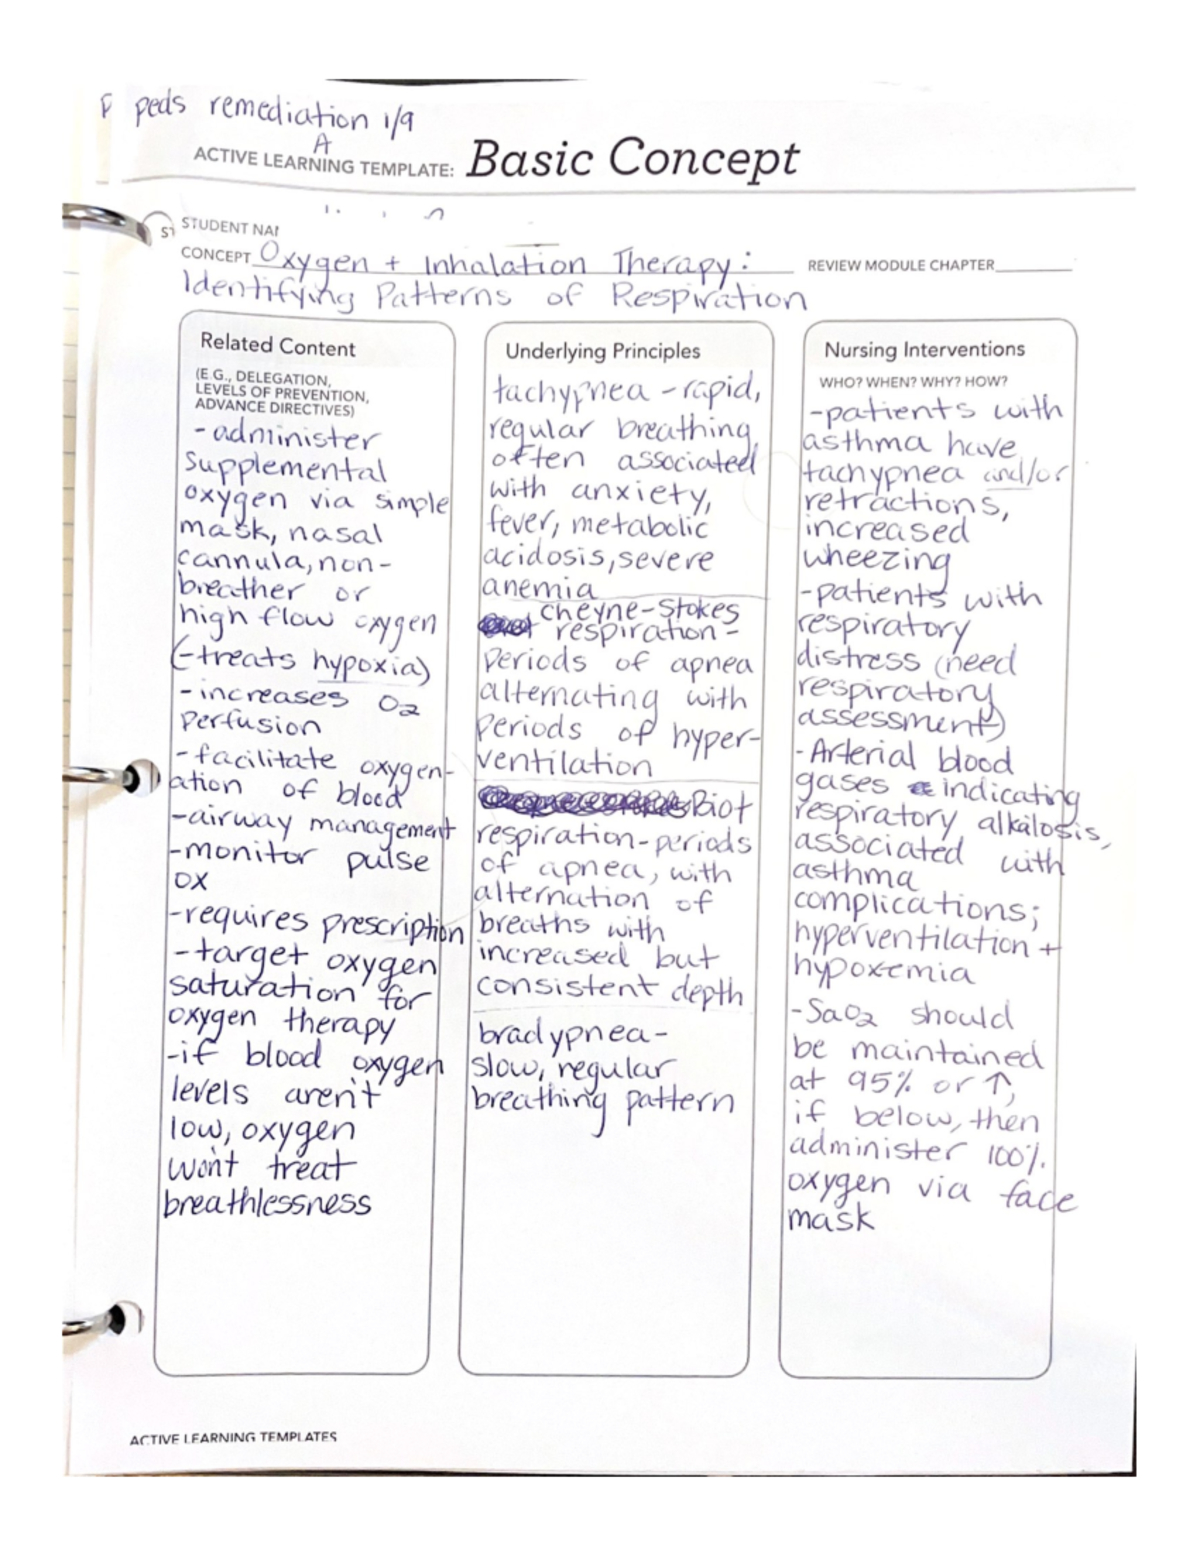 peds remediation 1/9
A
ACTIVE LEARNING TEMPLATE: Basic Concept
STUDENT NA
CONCEPT Oxygen + Inhalation Therapy:
REVIEW MODULE CHAPTER
Identifying Patterns of Respiration
Related Content
(E.G., DELEGATION,
LEVELS OF PREVENTION,
ADVANCE DIRECTIVES)
-administer
supplemental
oxygen via simple
mask, nasal
cannula, non-
breather or
high flow oxygen
(-treats hypoxia)
-increases O2
perfusion
-facilitate oxygen-
ation of blood
-airway management
-monitor pulse
ox
-requires prescription
-target oxygen
saturation for
oxygen therapy
-if blood oxygen
levels aren't
low, oxygen
won't treat
breathlessness
Underlying Principles
tachypnea - rapid,
regular breathing
often associated
with anxiety,
fever, metabolic
acidosis, severe
anemia
cheyne-Stokes
respiration-
periods of apnea
alternating with
periods of hyper-
ventilation
Biot
respiration-periods
of apnea, with
alternation of
breaths with
increased but
consistent depth
bradypnea-
slow, regular
breathing pattern
Nursing Interventions
WHO? WHEN? WHY? HOW?
-patients with
asthma have
tachypnea and/or
retractions,
increased
wheezing
-patients with
respiratory
distress (need
respiratory
assessment)
-Arterial blood
gases indicating
respiratory alkalosis,
associated with
asthma
complications;
hyperventilation +
hypoxemia
-SaO2 should
be maintained
at 95% or ↑,
if below, then
administer 100%
oxygen via face
mask
ACTIVE LEARNING TEMPLATES